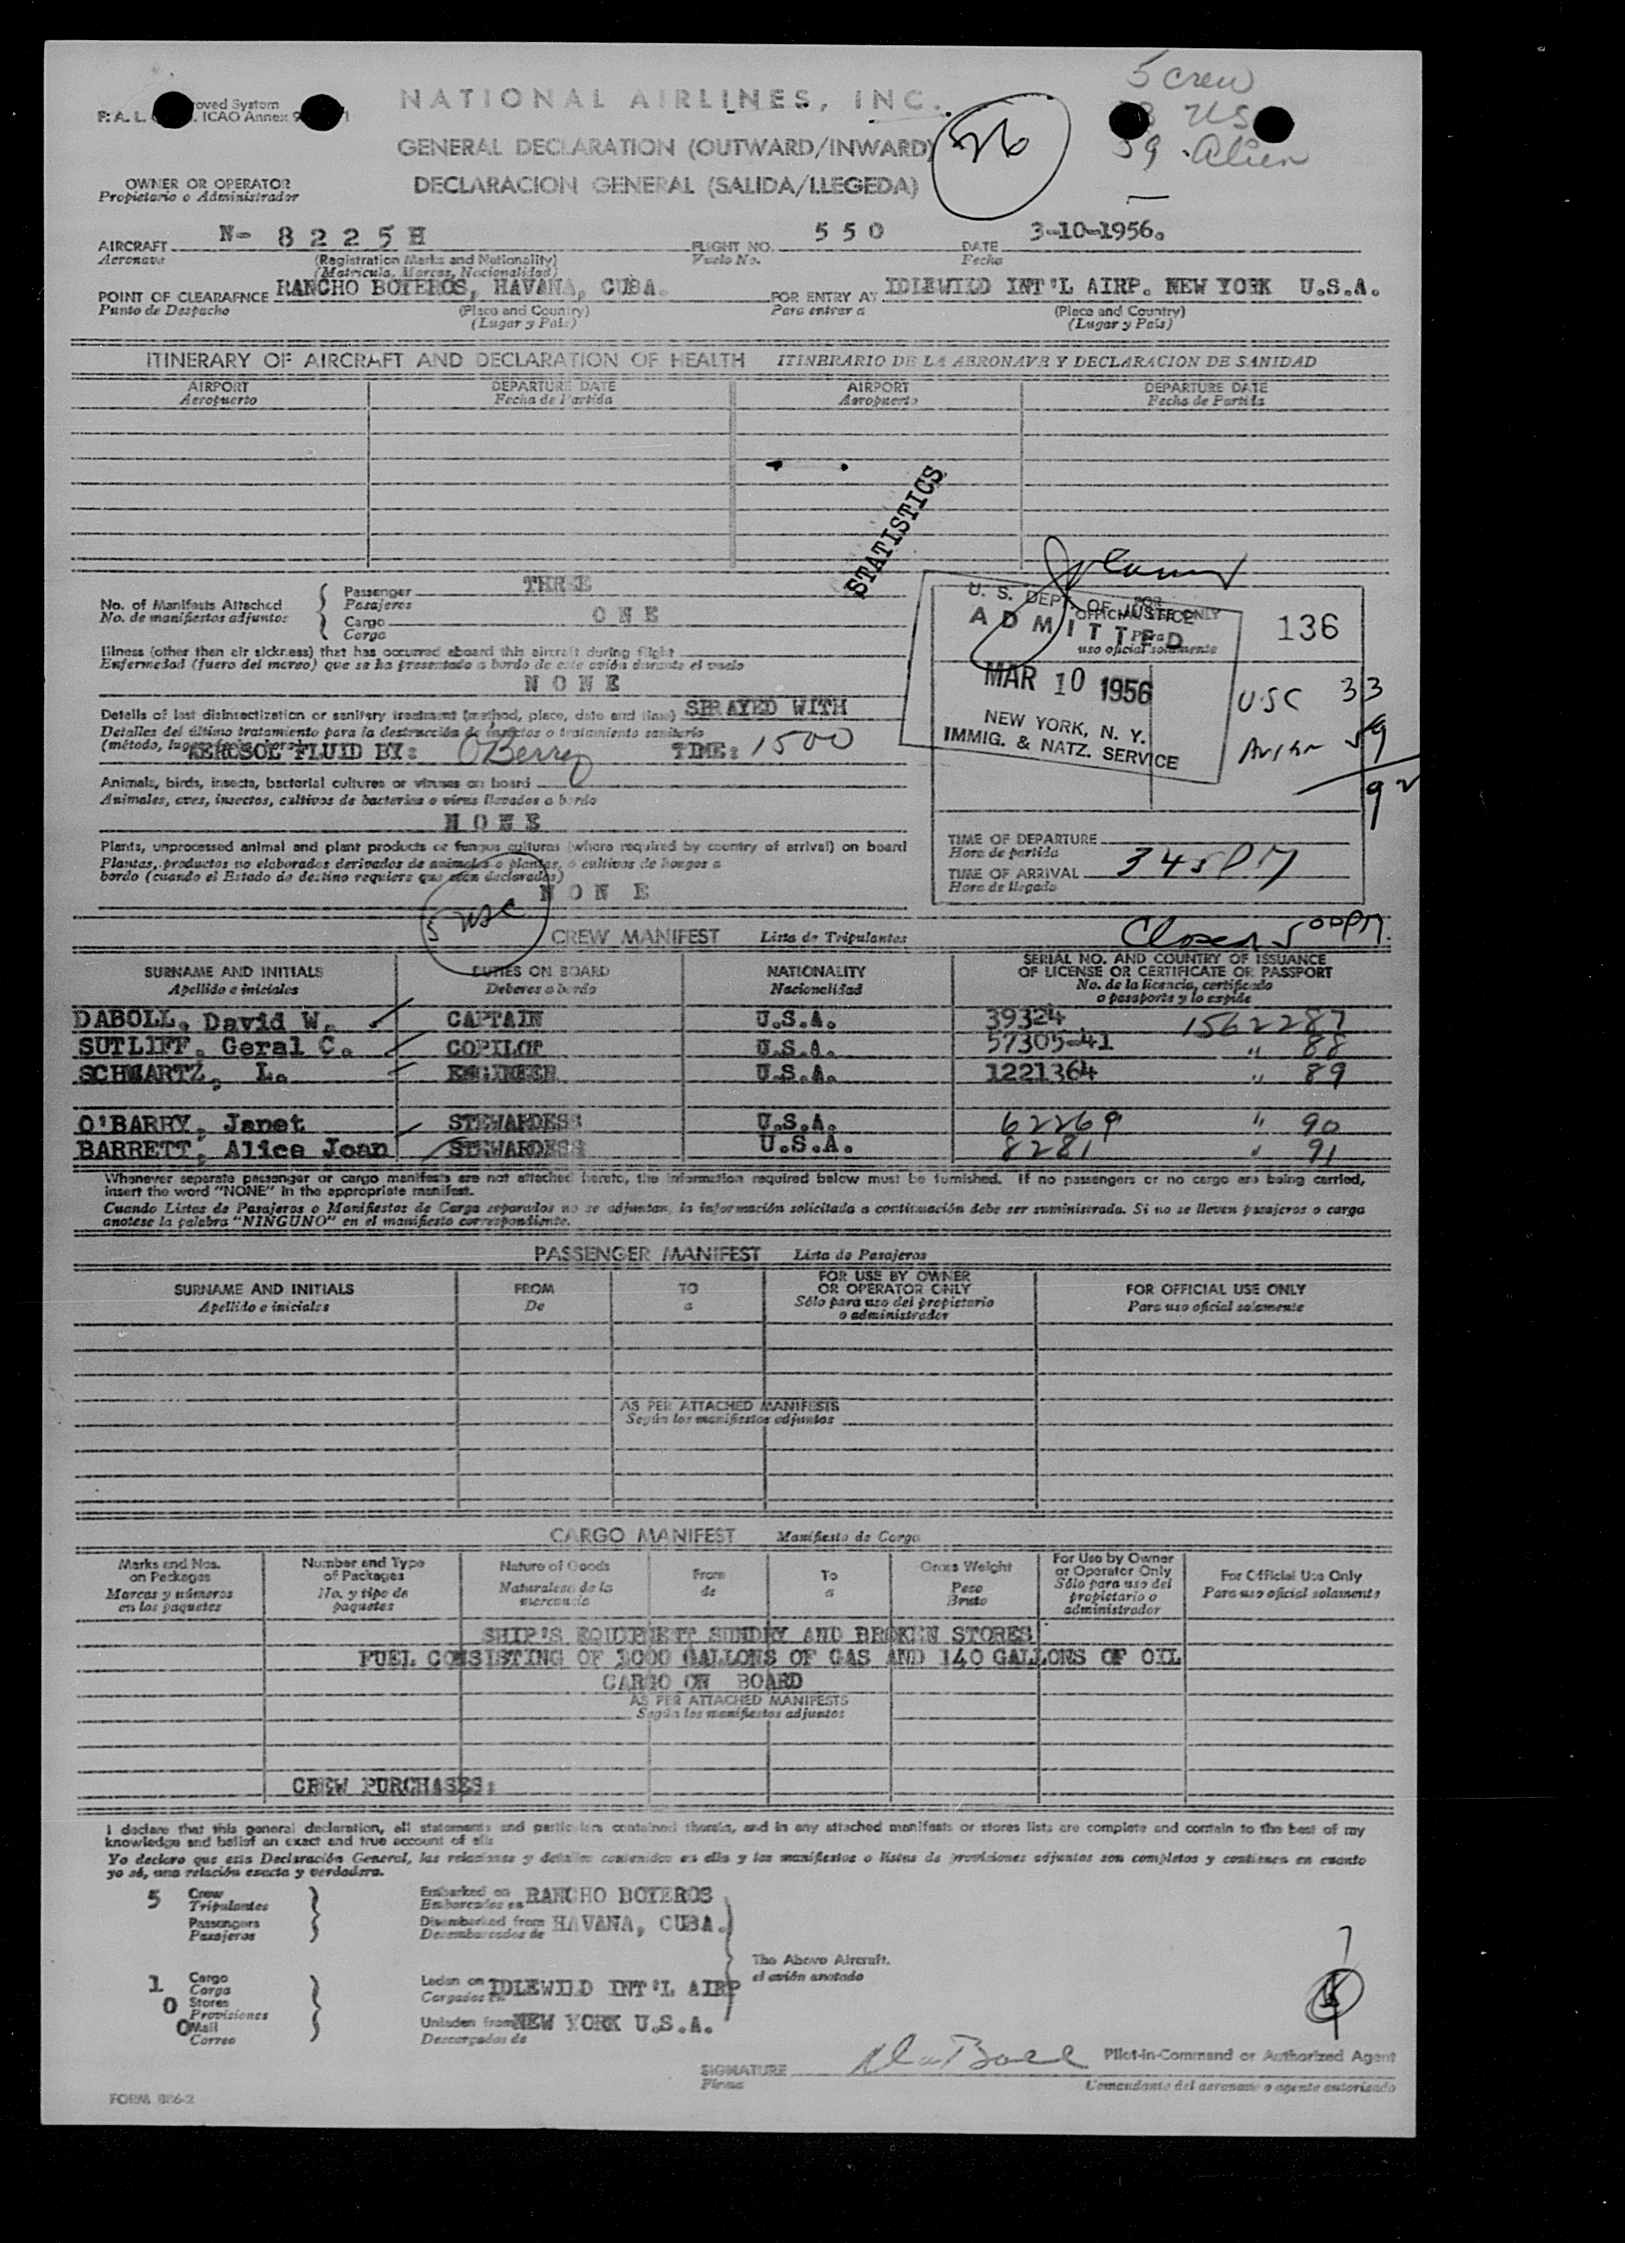 5 crew
US
59 Alien
oved System
F. A. L. ICAO Annex 9
NATIONAL AIRLINES, INC.
GENERAL DECLARATION (OUTWARD/INWARD)
DECLARACION GENERAL (SALIDA/LLEGEDA)
OWNER OR OPERATOR
Propietario o Administrador
AIRCRAFT N- 8 2 2 5 H FLIGHT NO. 5 5 0 DATE 3-10-1956.
Aeronave (Registration Marks and Nationality) Vuelo No. Fecha
(Matricula, Marcas, Nacionalidad)
POINT OF CLEARAFNCE RANCHO BOYEROS, HAVANA, CUBA. FOR ENTRY AT IDLEWILD INT'L AIRP. NEW YORK U.S.A.
Punto de Despacho (Place and Country) Para entrar a (Place and Country)
(Lugar y País) (Lugar y País)
ITINERARY OF AIRCRAFT AND DECLARATION OF HEALTH ITINERARIO DE LA AERONAVE Y DECLARACION DE SANIDAD
AIRPORT DEPARTURE DATE AIRPORT DEPARTURE DATE
Aeropuerto Fecha de Partida Aeropuerto Fecha de Partida
STATISTICS
No. of Manifests Attached Passenger THREE
No. de manifiestos adjuntos Pasajeros
Cargo O N E
Carga
Illness (other then air sickness) that has occurred aboard this aircraft during flight
Enfermedad (fuera del mareo) que se ha presentado a bordo de este avión durante el vuelo
N O N E
Details of last disinsectization or sanitary treatment (method, place, date and time) SPRAYED WITH
Detalles del último tratamiento para la destrucción de insectos o tratamiento sanitario
(método, lugar
AEROSOL FLUID BY: O'Berry TIME: 1500
Animals, birds, insects, bacterial cultures or viruses on board
Animales, aves, insectos, cultivos de bacterias o virus llevados a bordo
N O N E
Plants, unprocessed animal and plant products or fungus cultures (where required by country of arrival) on board
Plantas, productos no elaborados derivados de animales o plantas, o cultivos de hongos a
bordo (cuando el Estado de destino requiere que sean declarados)
N O N E
U. S. DEPT. OF JUSTICE
FOR
OFFICIAL USE ONLY
Para
uso oficial solamente
ADMITTED
MAR 10 1956
NEW YORK, N. Y.
IMMIG. & NATZ. SERVICE
136
USC 33
59
92
TIME OF DEPARTURE
Hora de partida
TIME OF ARRIVAL 345PM
Hora de llegada
Closed 500PM.
5 USC
CREW MANIFEST Lista de Tripulantes
SURNAME AND INITIALS DUTIES ON BOARD NATIONALITY SERIAL NO. AND COUNTRY OF ISSUANCE
OF LICENSE OR CERTIFICATE OR PASSPORT
Apellido e iniciales Deberes a bordo Nacionalidad No. de la licencia, certificado
o pasaporte y lo expide
DABOLL, David W. CAPTAIN U.S.A. 39324 1562287
SUTLIFF, Geral C. COPILOT U.S.A. 57305-41 " 88
SCHWARTZ, L. ENGINEER U.S.A. 1221364 " 89
O'BARRY, Janet STEWARDESS U.S.A. 62269 " 90
BARRETT, Alice Joan STEWARDESS U.S.A. 8281 " 91
Whenever separate passenger or cargo manifests are not attached hereto, the information required below must be furnished. If no passengers or no cargo are being carried,
insert the word "NONE" in the appropriate manifest.
Cuando Listas de Pasajeros o Manifiestos de Carga separados no se adjuntan, la información solicitada a continuación debe ser suministrada. Si no se lleven pasajeros o carga
anotese la palabra "NINGUNO" en el manifiesto correspondiente.
PASSENGER MANIFEST Lista de Pasajeros
SURNAME AND INITIALS FROM TO FOR USE BY OWNER
OR OPERATOR ONLY FOR OFFICIAL USE ONLY
Apellido e iniciales De a Sólo para uso del propietario
o administrador Para uso oficial solamente
AS PER ATTACHED MANIFESTS
Según los manifiestos adjuntos
CARGO MANIFEST Manifiesto de Carga
Marks and Nos.
on Packages
Marcas y números
en los paquetes
Number and Type
of Packages
No. y tipo de
paquetes
Nature of Goods
Naturaleza de la
mercancía
From
de
To
a
Gross Weight
Peso
Bruto
For Use by Owner
or Operator Only
Sólo para uso del
propietario o
administrador
For Official Use Only
Para uso oficial solamente
SHIP'S EQUIPMENT SUNDRY AND BROKEN STORES
FUEL CONSISTING OF 3000 GALLONS OF GAS AND 140 GALLONS OF OIL
CARGO ON BOARD
AS PER ATTACHED MANIFESTS
Según los manifiestos adjuntos
CREW PURCHASES:
I declare that this general declaration, all statements and particulars contained therein, and in any attached manifests or stores lists are complete and contain to the best of my
knowledge and belief an exact and true account of all
Yo declaro que esta Declaración General, las relaciones y detalles contenidos en ella y los manifiestos o listas de provisiones adjuntos son completos y contienen en cuanto
yo sé, una relación exacta y verdadera.
5 Crew
Tripulantes
Passengers
Pasajeros
Embarked on RANCHO BOYEROS
Embarcados en
Disembarked from HAVANA, CUBA.
Desembarcados de
The Above Aircraft.
el avión anotado
1 Cargo
Carga
0 Stores
Provisiones
0 Mail
Correo
Laden on IDLEWILD INT'L AIRP
Cargados en
Unladen from NEW YORK U.S.A.
Descargados de
SIGNATURE DaBoll Pilot-in-Command or Authorized Agent
Firma Comandante del aeronave o agente autorizado
FORM 886-2